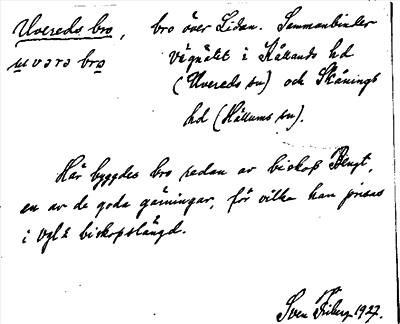 Uvereds bro, bro över Lidan. Sammanbinder
uvərə bro vägnätet i Kållands hd
(Uvereds sn) och Skånings
hd (Hällums sn).
Här byggdes bro redan av biskop Bengt,
en av de goda gärningar, för vilka han prisas
i VglL biskopslängd.
Sven Friberg 1927.